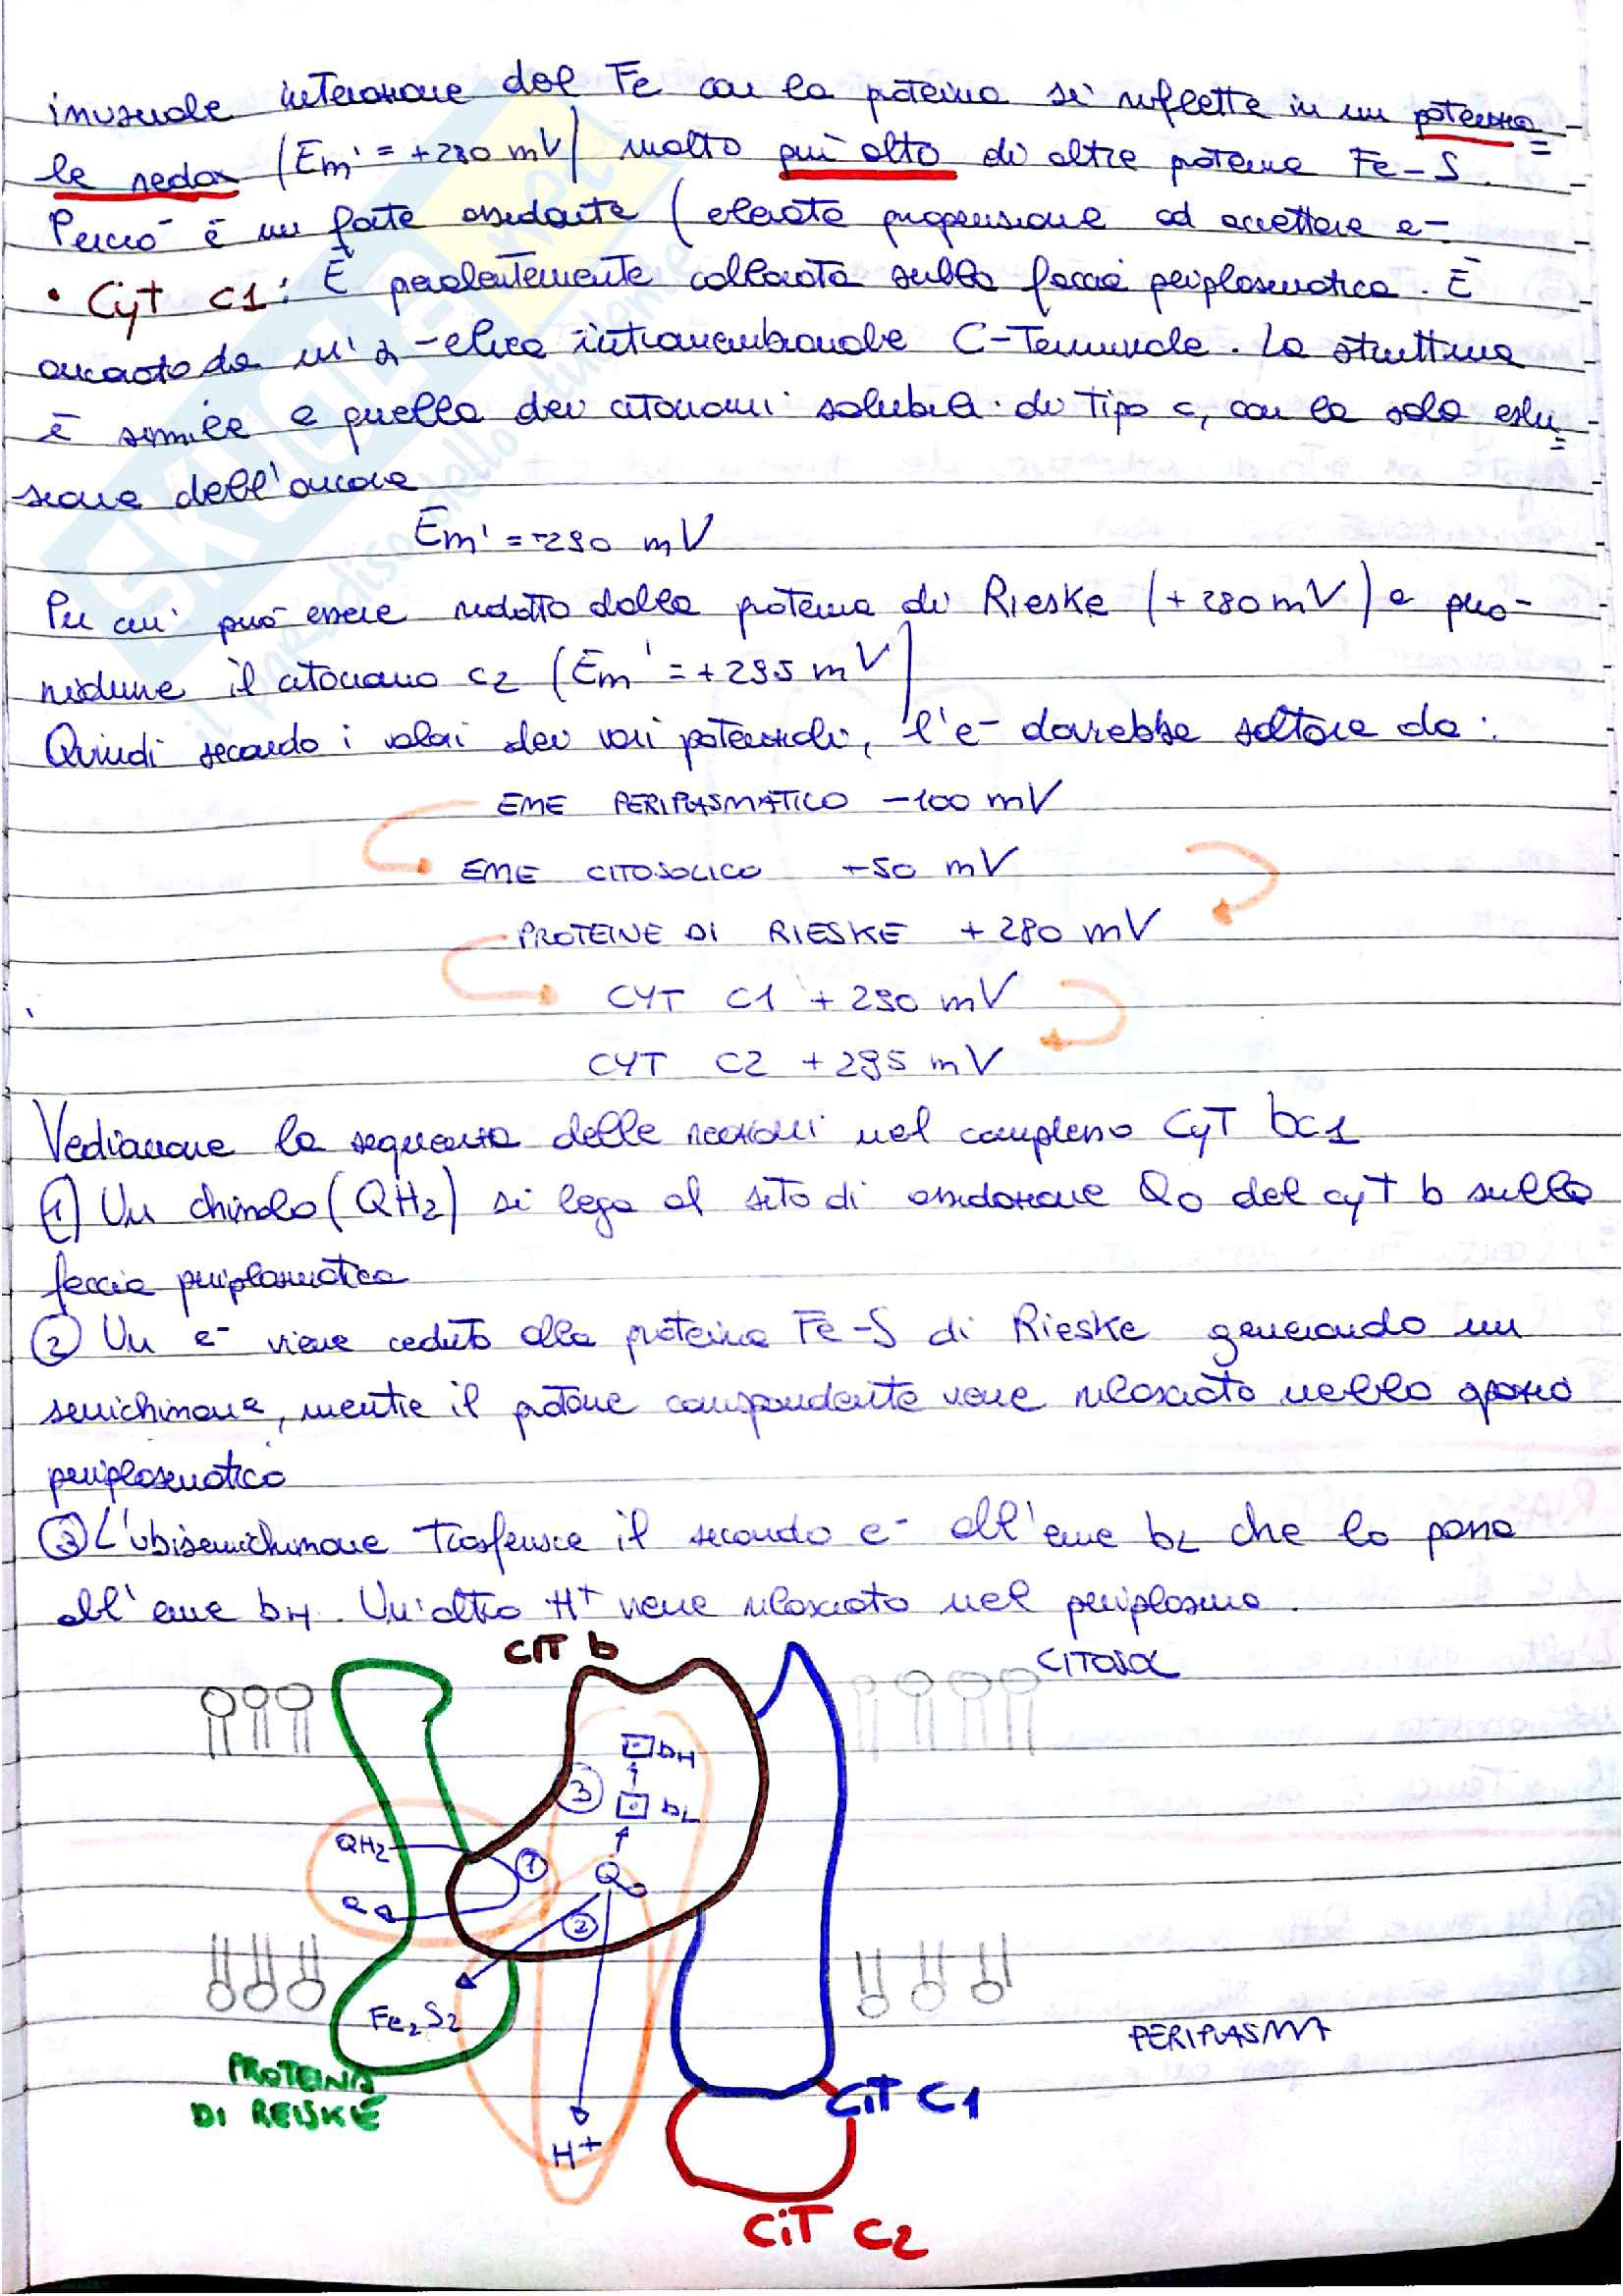 inusuale interazione del Fe con la proteina si riflette in un potenzia=
le redox (Em' = +280 mV) molto più alto di altre proteine Fe-S.
Perciò è un forte ossidante (elevata propensione ad accettare e-.
• Cyt C1: È prevalentemente collocata sulla faccia periplasmatica. È
ancorato da un' α-elica intramembranale C-Terminale. La struttura
è simile a quella dei citocromi solubili di Tipo c, con la sola esclu=
sione dell'ancora
Em' = +290 mV
Per cui può essere ridotto dalla proteina di Rieske (+280 mV) e può
ridurre il citocromo c2 (Em' = +295 mV)
Quindi secondo i valori dei vari potenziali, l'e- dovrebbe saltare da:
EME PERIPLASMATICO -100 mV
EME CITOSOLICO +50 mV
PROTEINE DI RIESKE +280 mV
CYT C1 +290 mV
CYT C2 +295 mV
Vediamone la sequenza delle reazioni nel complesso CyT bc1
① Un chinolo (QH2) si lega al sito di ossidazione Qo del cyt b sulla
faccia periplasmatica
② Un e- viene ceduto alla proteina Fe-S di Rieske generando un
semichinone, mentre il protone corrispondente viene rilasciato nello spazio
periplasmatico
③ L'ubisemichinone Trasferisce il secondo e- all'eme bL che lo passa
all'eme bH. Un'altro H+ viene rilasciato nel periplasma.
CIT b
CITOSOL
bH
③
bL
QH2
①
Qo
②
Fe2S2
PERIPLASMA
PROTEINA
DI REISKE
CiT C1
H+
CiT C2
SKUOLA.net
il paradiso nello studente